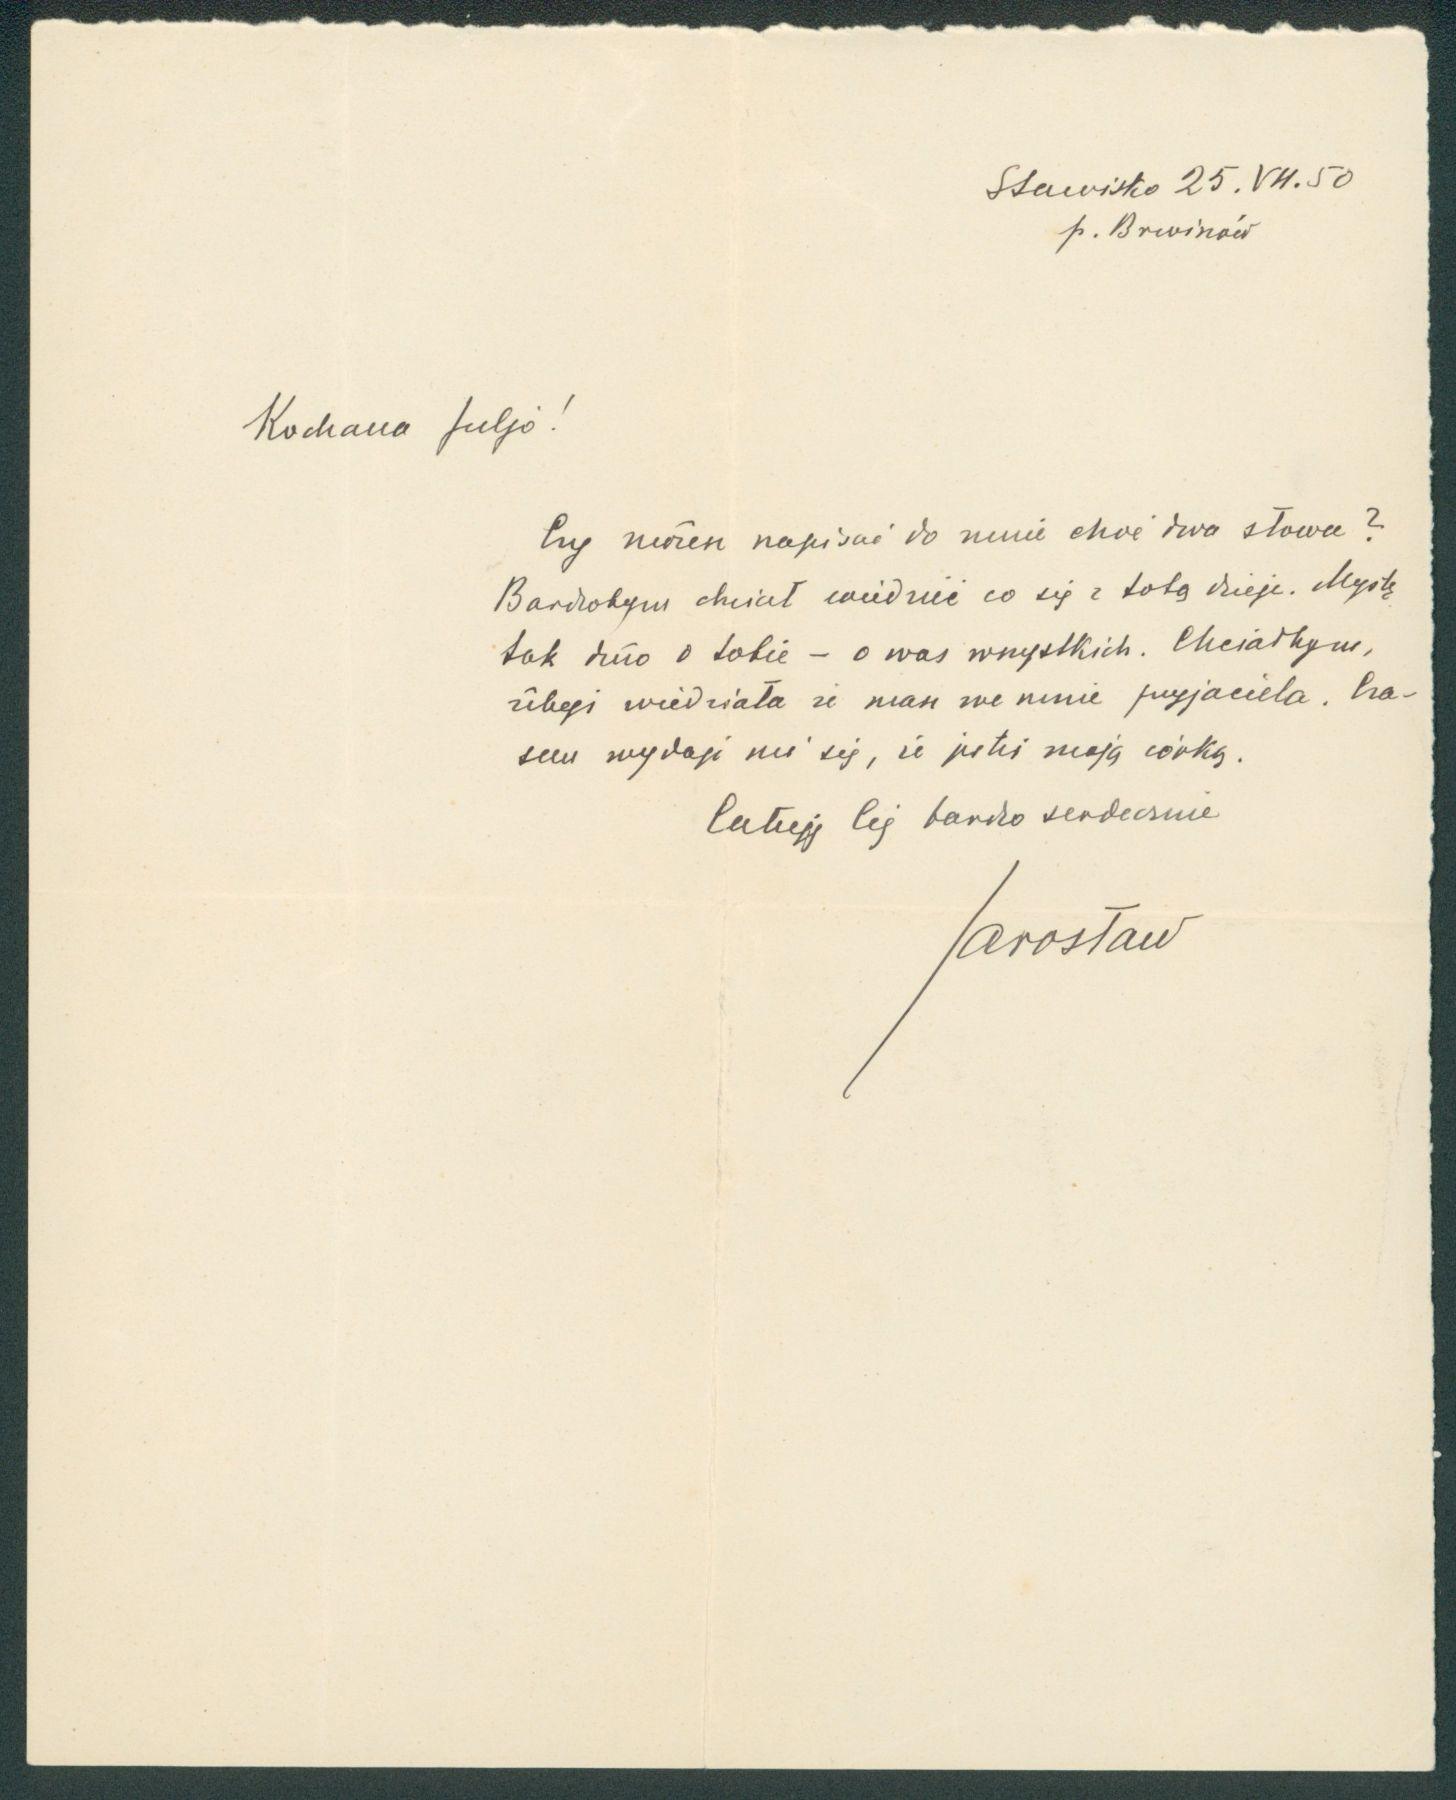 Stawisko 25.VII.50
p. Brwinów
Kochana Juljo!
Czy możesz napisać do mnie choć dwa słowa?
Bardzobym chciał wiedzieć co się z tobą dzieje. Myślę
tak dużo o tobie – o was wszystkich. Chciałbym,
żebyś wiedziała że masz we mnie przyjaciela. Cza-
sem wydaje mi się, że jesteś moją córką.
Całuję Cię bardzo serdecznie
Jarosław